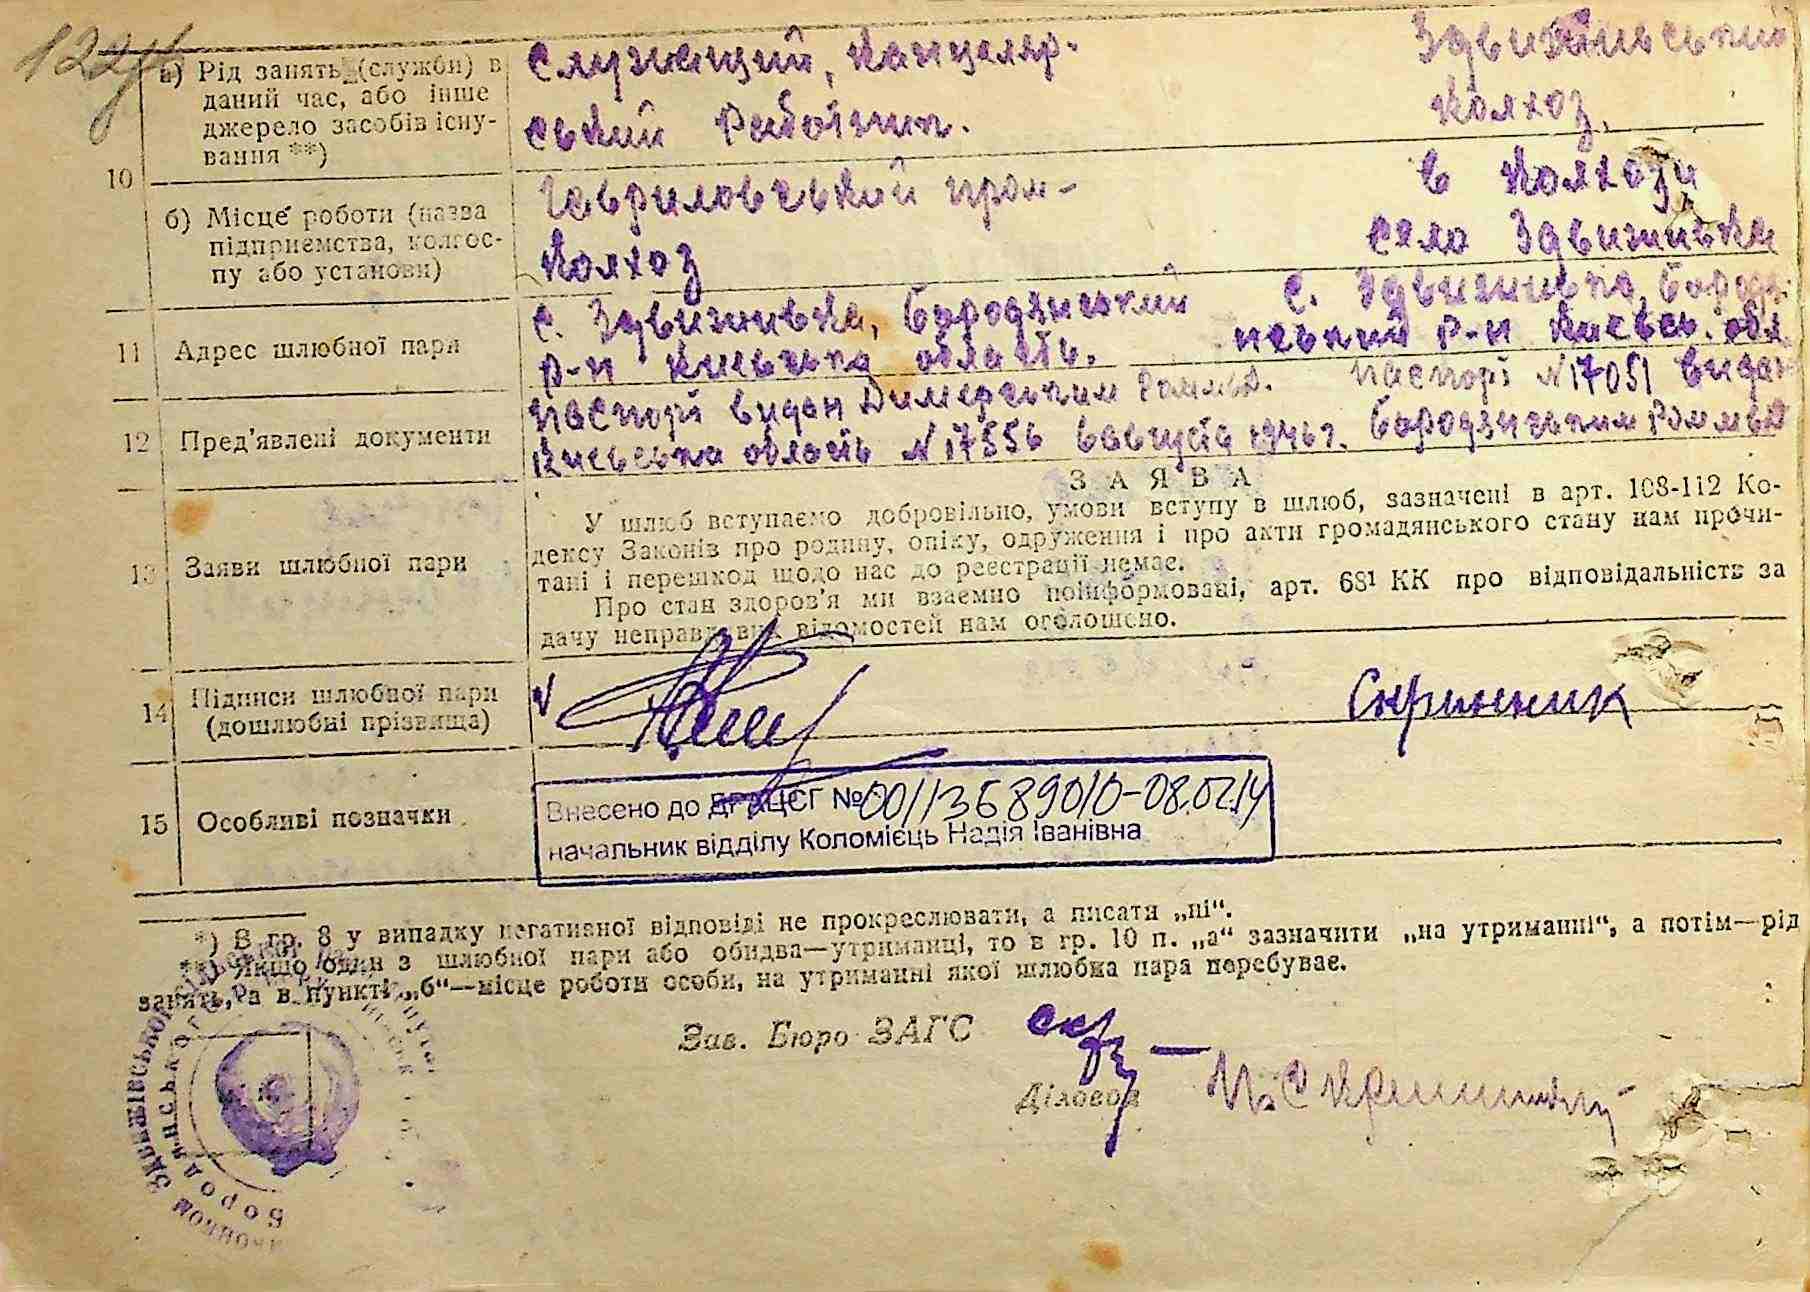 122
10
а) Рід занять (служби) в
даний час, або інше
джерело засобів існу-
вання **)
Служащий, Канцеляр-
ський Работник.
Здвижівський
Колхоз.
б) Місце роботи (назва
підприємства, колгос-
пу або установи)
Гавриловський пром-
Колхоз
в Колхозі
село Здвижівка
11
Адрес шлюбної пари
с. Здвижівка, Бородянський
р-н Киевська область.
с. Здвижівка, Бородя-
нський р-н Киевсь. обл.
12
Пред’явлені документи
паспорт видан Димерським Раммил.
Киевська область N 17556 6 августа 1946 г.
паспорт N 17051 видан
Бородянським Раммил
13
Заяви шлюбної пари
З А Я В А
У шлюб вступаємо добровільно, умови вступу в шлюб, зазначені в арт. 108-112 Ко-
дексу Законів про родину, опіку, одруження і про акти громадянського стану нам прочи-
тані і перешкод щодо нас до реєстрації немає.
Про стан здоров’я ми взаємно поінформовані, арт. 68¹ КК про відповідальність за
дачу неправдивих відомостей нам оголошено.
14
Підписи шлюбної пари
(дошлюбні прізвища)
Скринник
15
Особливі позначки
Внесено до ДРАЦСГ № 00113689010-08.02.14
начальник відділу Коломієць Надія Іванівна
*) В гр. 8 у випадку негативної відповіді не прокреслювати, а писати „ні“.
Якщо один з шлюбної пари або обидва—утриманці, то в гр. 10 п. „а“ зазначити „на утриманні“, а потім—рід
занять, а в пункті „б“—місце роботи особи, на утриманні якої шлюбна пара перебуває.
Зав. Бюро ЗАГС
Діловод